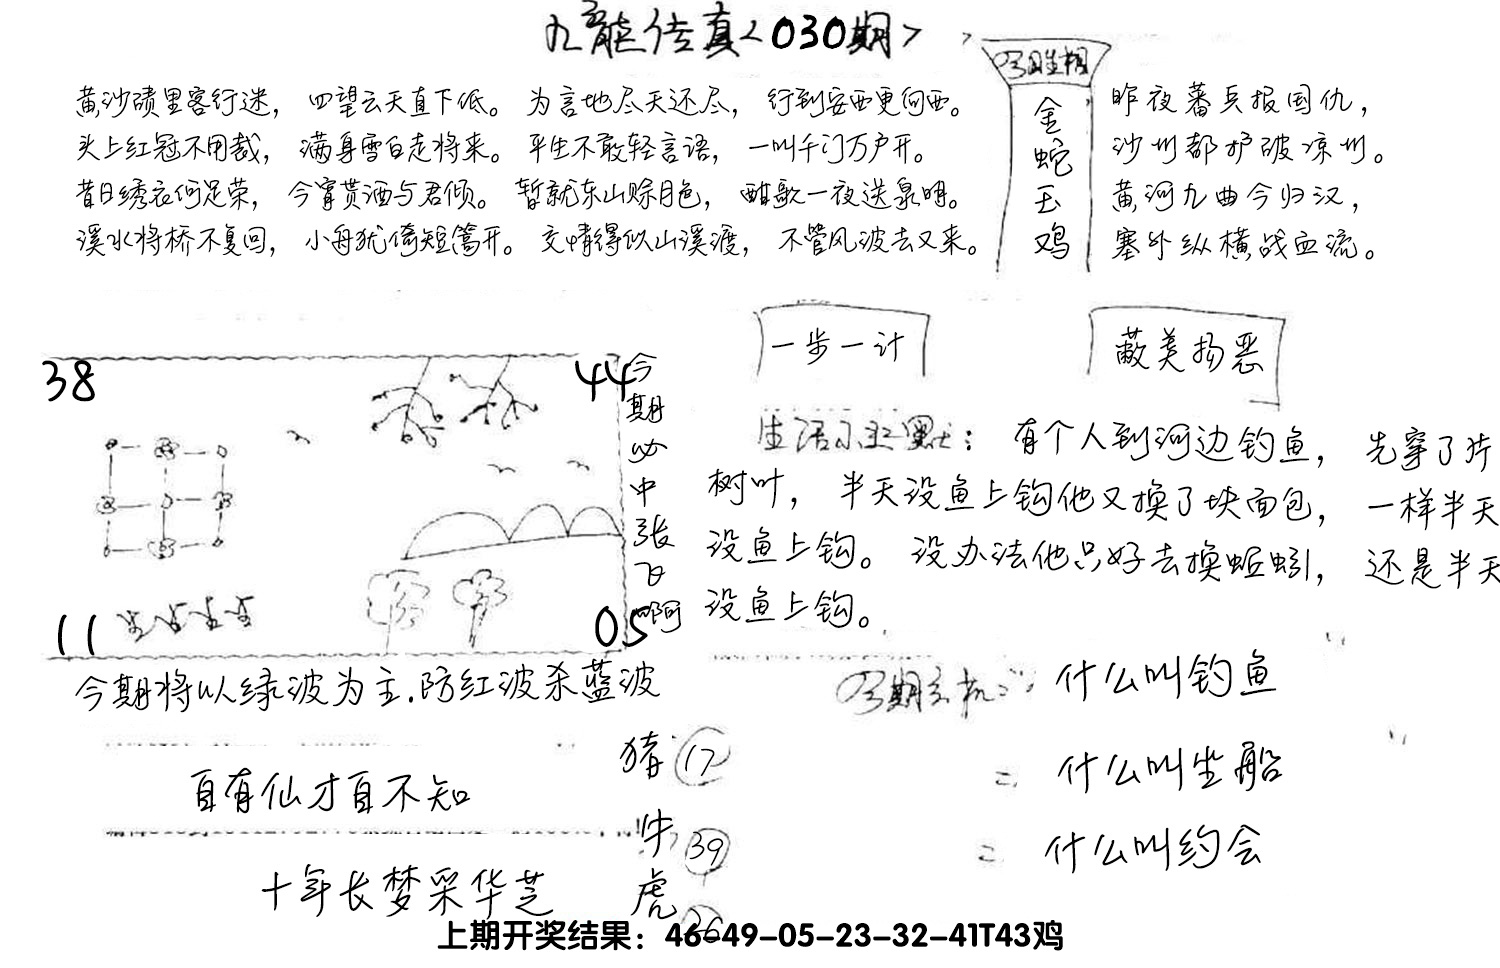 九龙传真<030期>
黄沙碛里客行迷，四望云天直下低。为言地尽天还尽，行到安西更向西。
头上红冠不用裁，满身雪白走将来。平生不敢轻言语，一叫千门万户开。
昔日绣衣何足荣，今宵贳酒与君倾。暂就东山赊月色，酣歌一夜送泉明。
溪水将桥不复回，小舟犹倚短篙开。交情得似山溪渡，不管风波去又来。
今期生相
金蛇玉鸡
昨夜蕃兵报国仇，
沙州都护破凉州。
黄河九曲今归汉，
塞外纵横战血流。
一步一计
蔽美扬恶
38
44
11
05
今期必中张飞啊
生活小幽默：有个人到河边钓鱼，先穿了片
树叶，半天没鱼上钩他又换了块面包，一样半天
没鱼上钩。没办法他只好去换蚯蚓，还是半天
没鱼上钩。
今期将以绿波为主.防红波杀蓝波
今期玄机：什么叫钓鱼
什么叫坐船
什么叫约会
自有仙才自不知
十年长梦采华芝
猪 17
牛 39
虎 26
上期开奖结果：46-49-05-23-32-41T43鸡